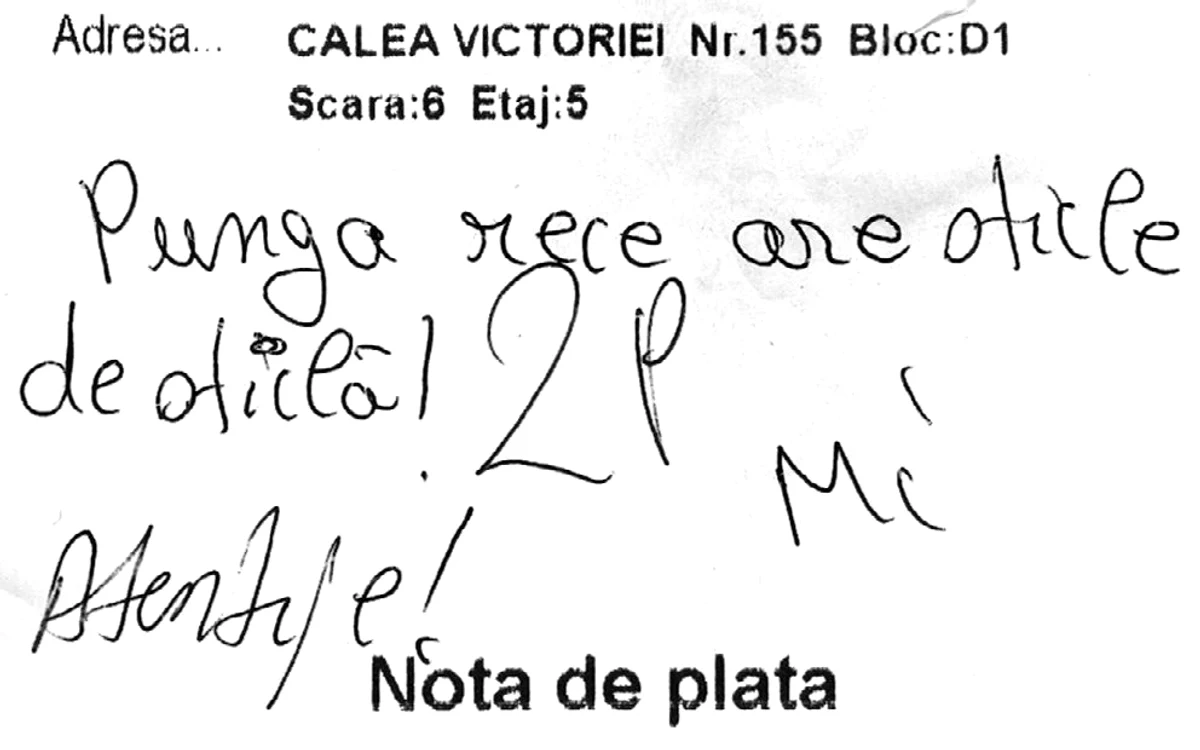 Adresa... CALEA VICTORIEI Nr.155 Bloc:D1
Scara:6 Etaj:5
Punga rece are sticle
de sticlă! 2P
Mi
Atenție!
Nota de plata